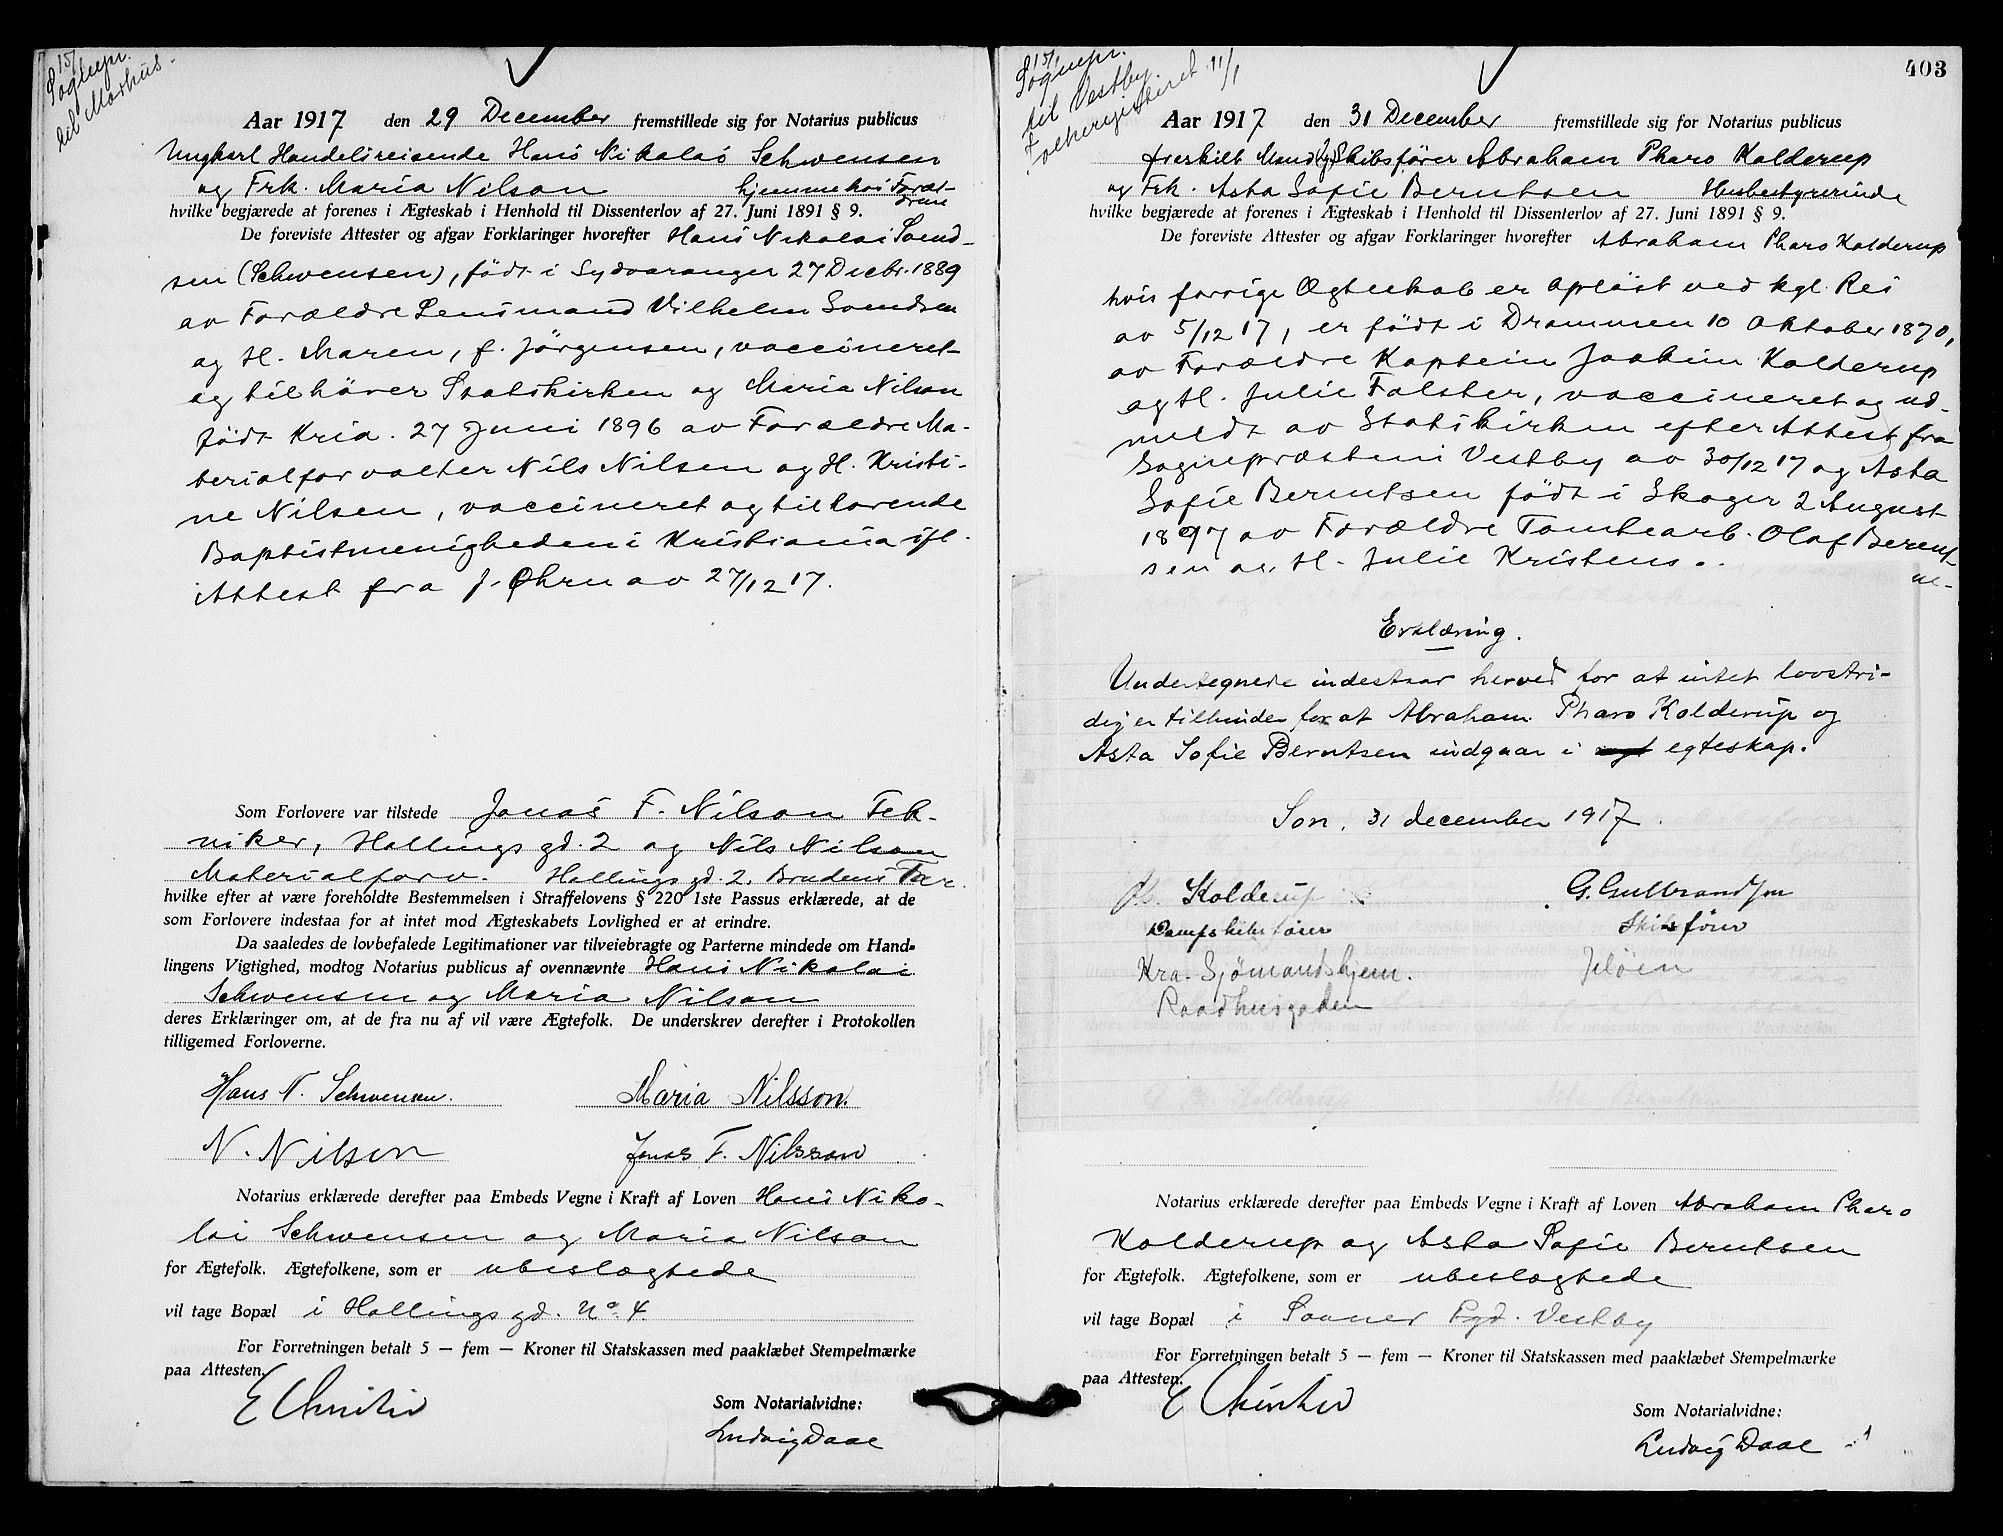 15/1
Sognepr.
til Markus.
Aar 1917 den 29 December fremstillede sig for Notarius publicus
Ungkarl Handelsreisende Hans Nikolai Schwensen
og Frk. Maria Nilson hjemme hos Foræl-
drene
hvilke begjærede at forenes i Ægteskab i Henhold til Dissenterlov af 27. Juni 1891 § 9.
De foreviste Attester og afgav Forklaringer hvorefter Hans Nikolai Svend-
sen (Schwensen), født i Sydvaranger 27 Decbr. 1889
av Forældre Lensmand Vilhelm Svendsen
og H. Maren, f. Jørgensen, vaccineret
og tilhører Statskirken og Maria Nilson
født Kria. 27 Juni 1896 av Forældre Ma-
terialforvalter Nils Nilsen og H. Kristi-
ne Nilsen, vaccineret og tilhørende
Baptistmenigheden i Kristiania ifl.
Attest fra J. Øhrn av 27/12 17.
Som Forlovere var tilstede Jonas F. Nilson Tek-
niker, Hallings gd. 2 og Nils Nilson
Materialforv. Hallings gd. 2. Brudens Far.
hvilke efter at være foreholdte Bestemmelsen i Straffelovens § 220 1ste Passus erklærede, at de
som Forlovere indestaa for at intet mod Ægteskabets Lovlighed er at erindre.
Da saaledes de lovbefalede Legitimationer var tilveiebragte og Parterne mindede om Hand-
lingens Vigtighed, modtog Notarius publicus af ovennævnte Hans Nikolai
Schwensen og Maria Nilson
deres Erklæringer om, at de fra nu af vil være Ægtefolk. De underskrev derefter i Protokollen
tilligemed Forloverne.
Hans N. Schwensen. Maria Nilsson.
N. Nilson Jonas F. Nilsson
Notarius erklærede derefter paa Embeds Vegne i Kraft af Loven Hans Niko-
lai Schwensen og Maria Nilson
for Ægtefolk. Ægtefolkene, som er ubeslægtede
vil tage Bopæl i Hallings gd. No. 4.
For Forretningen betalt 5 — fem — Kroner til Statskassen med paaklæbet Stempelmærke
paa Attesten.
E Christie
Som Notarialvidne:
Ludvig Daae
403
15/1
Sognepr.
til Vestby
Folkeregisteret 11/1
Aar 1917 den 31 December fremstillede sig for Notarius publicus
fraskilt Mand Skibsfører Abraham Pharo Kolderup
og Frk. Asta Sofie Berntsen Husbestyrerinde
hvilke begjærede at forenes i Ægteskab i Henhold til Dissenterlov af 27. Juni 1891 § 9.
De foreviste Attester og afgav Forklaringer hvorefter Abraham Pharo Kolderup
hvis forrige Ægteskab er opløst ved kgl. Res
av 5/12 17, er født i Drammen 10 Oktober 1870,
av Forældre Kaptein Joakim Kolderup
og H. Julie Falster, vaccineret og ud-
meldt av Statskirken efter Attest fra
Sognepræsten i Vestby av 30/12 17 og Asta
Sofie Berntsen født i Skoger 2 August
1897 av Forældre Tomtearb. Olaf Bernt-
sen og H. Julie Kristens..
Erklæring.
Undertegnede indestaar herved for at intet lovstri-
dig er tilhinder for at Abraham Pharo Kolderup og
Asta Sofie Berntsen indgaar i egteskap.
Son, 31 december 1917.
Kolderup G. Gulbrandsen
Dampskibsfører Skibsfører
Kra. Sjømandshjem. Jeløen
Raadhusgaden
Notarius erklærede derefter paa Embeds Vegne i Kraft af Loven Abraham Pharo
Kolderup og Asta Sofie Berntsen
for Ægtefolk. Ægtefolkene, som er ubeslægtede
vil tage Bopæl i Sauner Pgd. Vestby
For Forretningen betalt 5 — fem — Kroner til Statskassen med paaklæbet Stempelmærke
paa Attesten.
E Christie
Som Notarialvidne:
Ludvig Daae